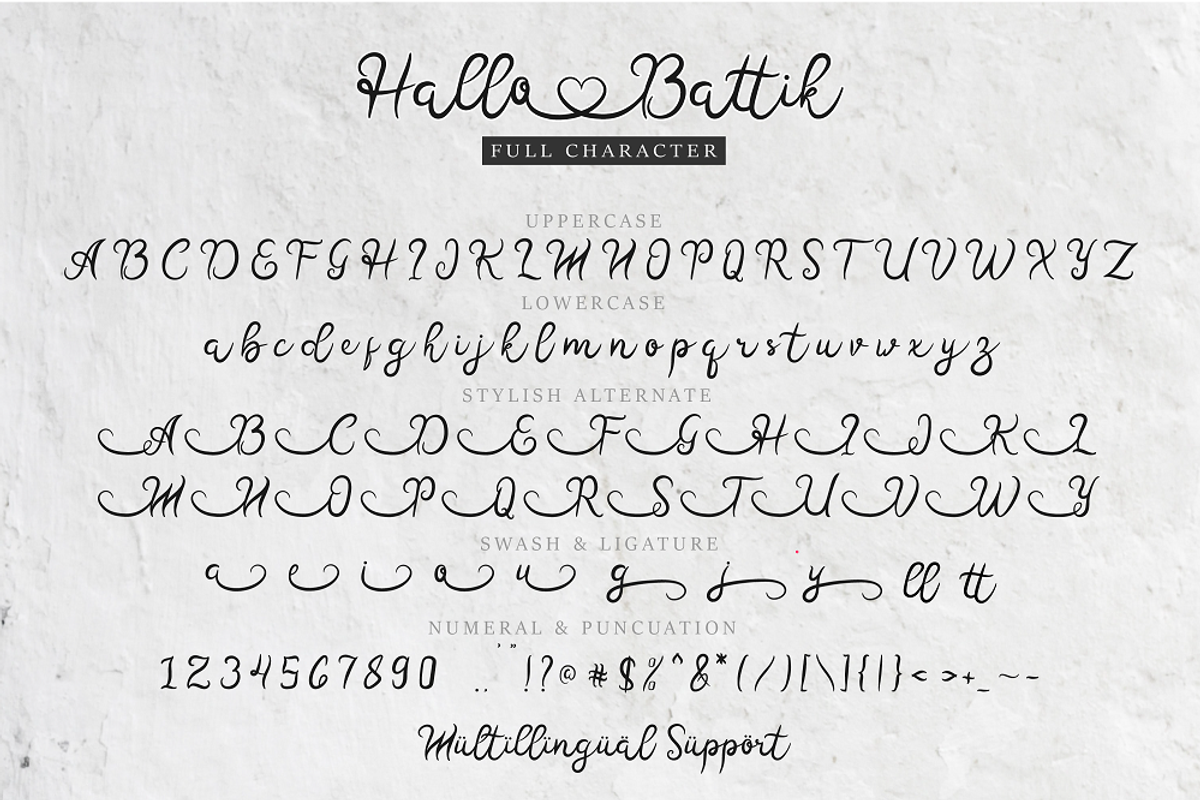 Hallo Battik
FULL CHARACTER
UPPERCASE
A B C D E F G H I J K L M N O P Q R S T U V W X Y Z
LOWERCASE
a b c d e f g h i j k l m n o p q r s t u v w x y z
STYLISH ALTERNATE
A B C D E F G H I J K L
M N O P Q R S T U V W Y
SWASH & LIGATURE
a e i o u g j y ll tt
NUMERAL & PUNCUATION
1 2 3 4 5 6 7 8 9 0 . . ' " ! ? @ # $ % ^ & * ( / ) [ \ ] { | } < > + _ ~ -
Mültïllïngüäl Süppört